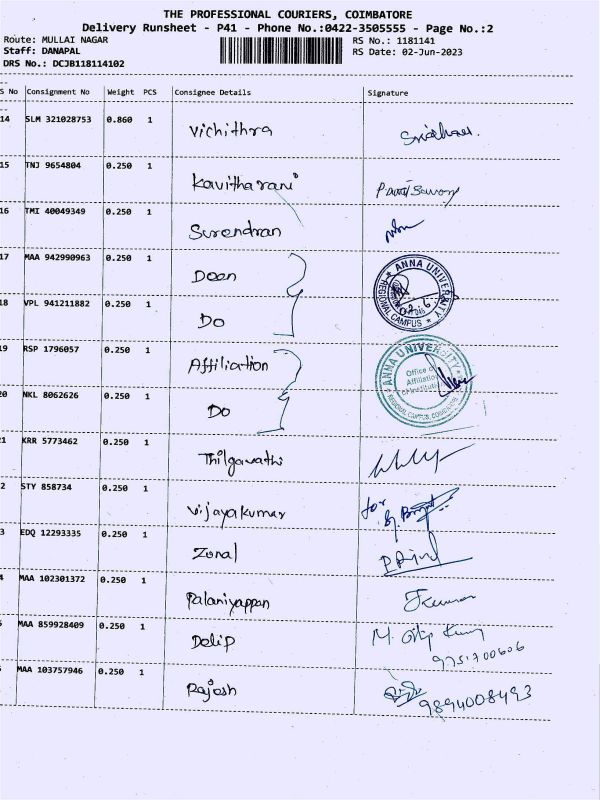 THE PROFESSIONAL COURIERS, COIMBATORE
Delivery Runsheet - P41 - Phone No.:0422-3505555 - Page No.:2
Route: MULLAI NAGAR
Staff: DANAPAL
DRS No.: DCJB118114102
RS No.: 1181141
RS Date: 02-Jun-2023
S No Consignment No Weight PCS Consignee Details Signature
14 SLM 321028753 0.860 1 Vichithra
15 TNJ 9654804 0.250 1 Kavitharani
16 TMI 40049349 0.250 1 Surendran
17 MAA 942990963 0.250 1 Deen
ANNA UNIVERSITY
REGIONAL CAMPUS
18 VPL 941211882 0.250 1 Do
19 RSP 1796057 0.250 1 Affiliation
ANNA UNIVERSITY
Office of
Affiliation
of Institutions
REGIONAL CAMPUS, COIMBATORE
20 NKL 8062626 0.250 1 Do
21 KRR 5773462 0.250 1 Thilgavathi
2 STY 858734 0.250 1 Vijayakumar for
3 EDQ 12293335 0.250 1 Zonal
4 MAA 102301372 0.250 1 Palaniyappan
MAA 859928409 0.250 1 Delip
9751700606
MAA 103757946 0.250 1 Rajesh
9894008493